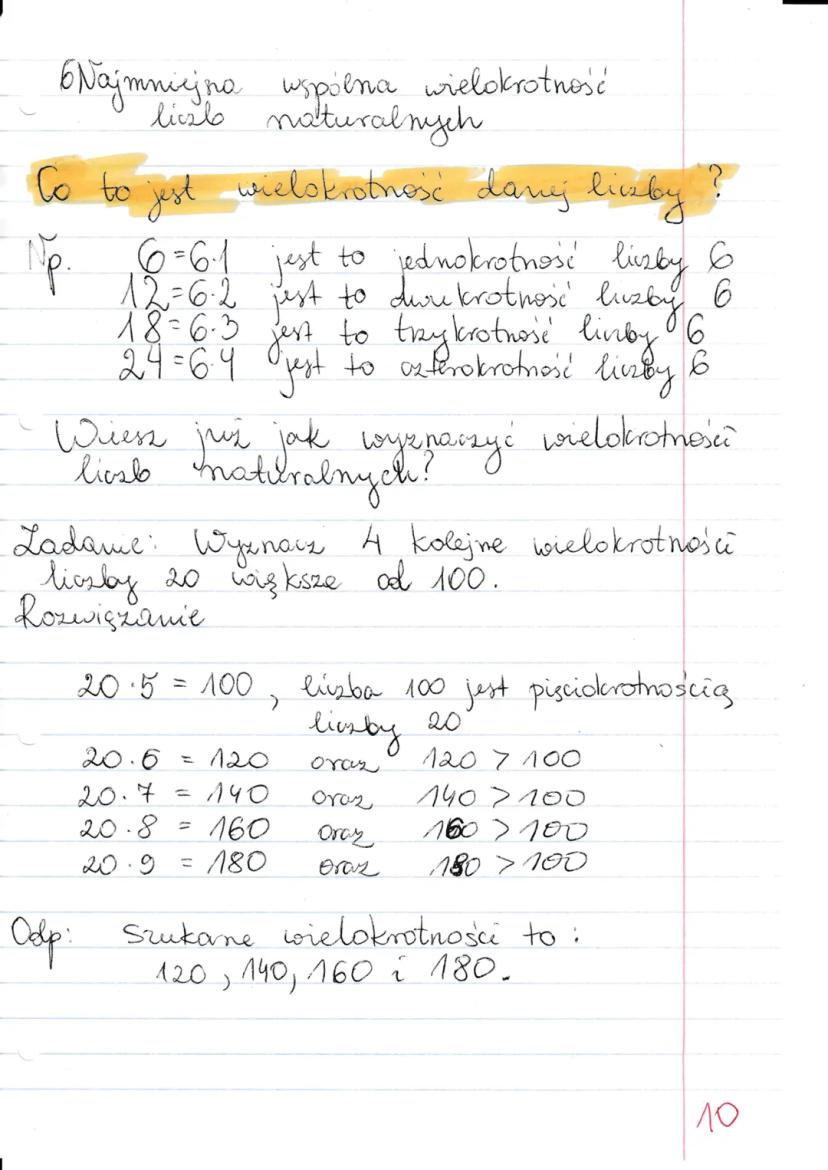 6 Najmniejsza wspólna wielokrotność
liczb naturalnych
Co to jest wielokrotność danej liczby?
Np. 6=6·1 jest to jednokrotność liczby 6
12=6·2 jest to dwukrotność liczby 6
18=6·3 jest to trzykrotność liczby 6
24=6·4 jest to czterokrotność liczby 6
Wiesz już jak wyznaczyć wielokrotności
liczb naturalnych?
Zadanie: Wyznacz 4 kolejne wielokrotności
liczby 20 większe od 100.
Rozwiązanie
20·5 = 100, liczba 100 jest pięciokrotnością
liczby 20
20·6 = 120 oraz 120 > 100
20·7 = 140 oraz 140 > 100
20·8 = 160 oraz 160 > 100
20·9 = 180 oraz 180 > 100
Odp: Szukane wielokrotności to:
120, 140, 160 i 180.
10